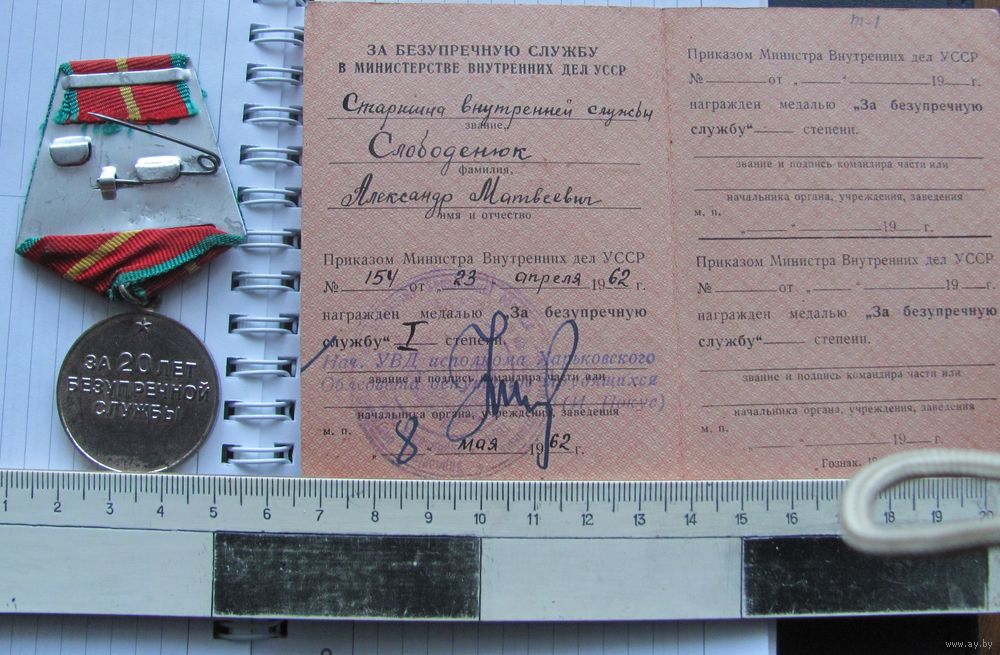 ЗА 20 ЛЕТ
БЕЗУПРЕЧНОЙ
СЛУЖБЫ
ЗА БЕЗУПРЕЧНУЮ СЛУЖБУ
В МИНИСТЕРСТВЕ ВНУТРЕННИХ ДЕЛ УССР
Старшина внутренней службы
звание,
Слободенюк
фамилия,
Александр Матвеевич
имя и отчество
Приказом Министра Внутренних дел УССР
№ 154 от „23" апреля 1962 г.
награжден медалью „За безупречную
службу" I степени.
Нач. УВД исполкома Харьковского
звание и подпись командира части или
Облсовета депутатов трудящихся
начальника органа, учреждения, заведения
м. п.
„8" мая 1962 г.
т-1
Приказом Министра Внутренних дел УССР
№ от „ " 19 г.
награжден медалью „За безупречную
службу" степени.
звание и подпись командира части или
начальника органа, учреждения, заведения
м. п.
„ " 19 г.
Приказом Министра Внутренних дел УССР
№ от „ " 19 г.
награжден медалью „За безупречную
службу" степени.
звание и подпись командира части или
начальника органа, учреждения, заведения
м. п.
„ " 19 г.
Гознак.
1 2 3 4 5 6 7 8 9 10 11 12 13 14 15 16 17 18 19 20
www.ay.by